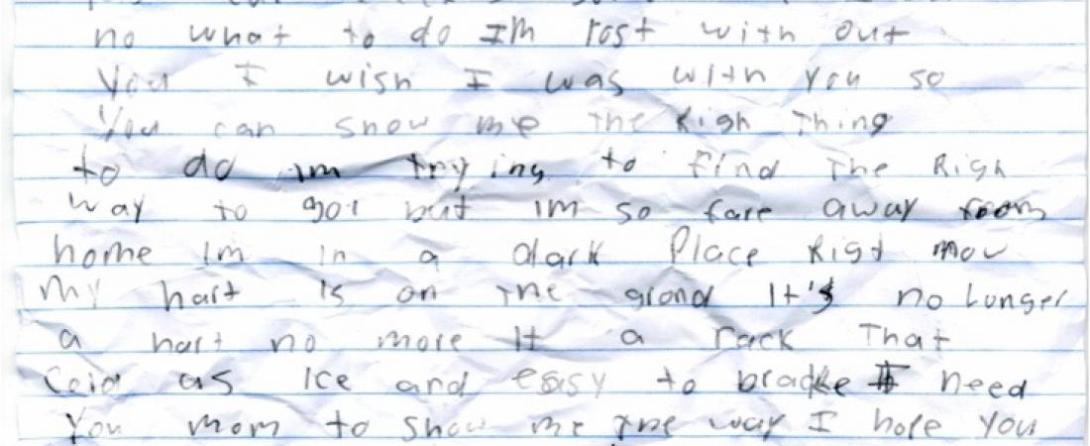 no what to do Im lost with out
You I wish I was with you so
You can show me the Righ Thing
to do im trying to find The Righ
way to go but im so fare away from
home Im in a dark Place Rigt now
My hart is on the grond It's no Lunger
a hart no more It a rack That
Cold as Ice and easy to brake I need
You mom to show me the way I hope you